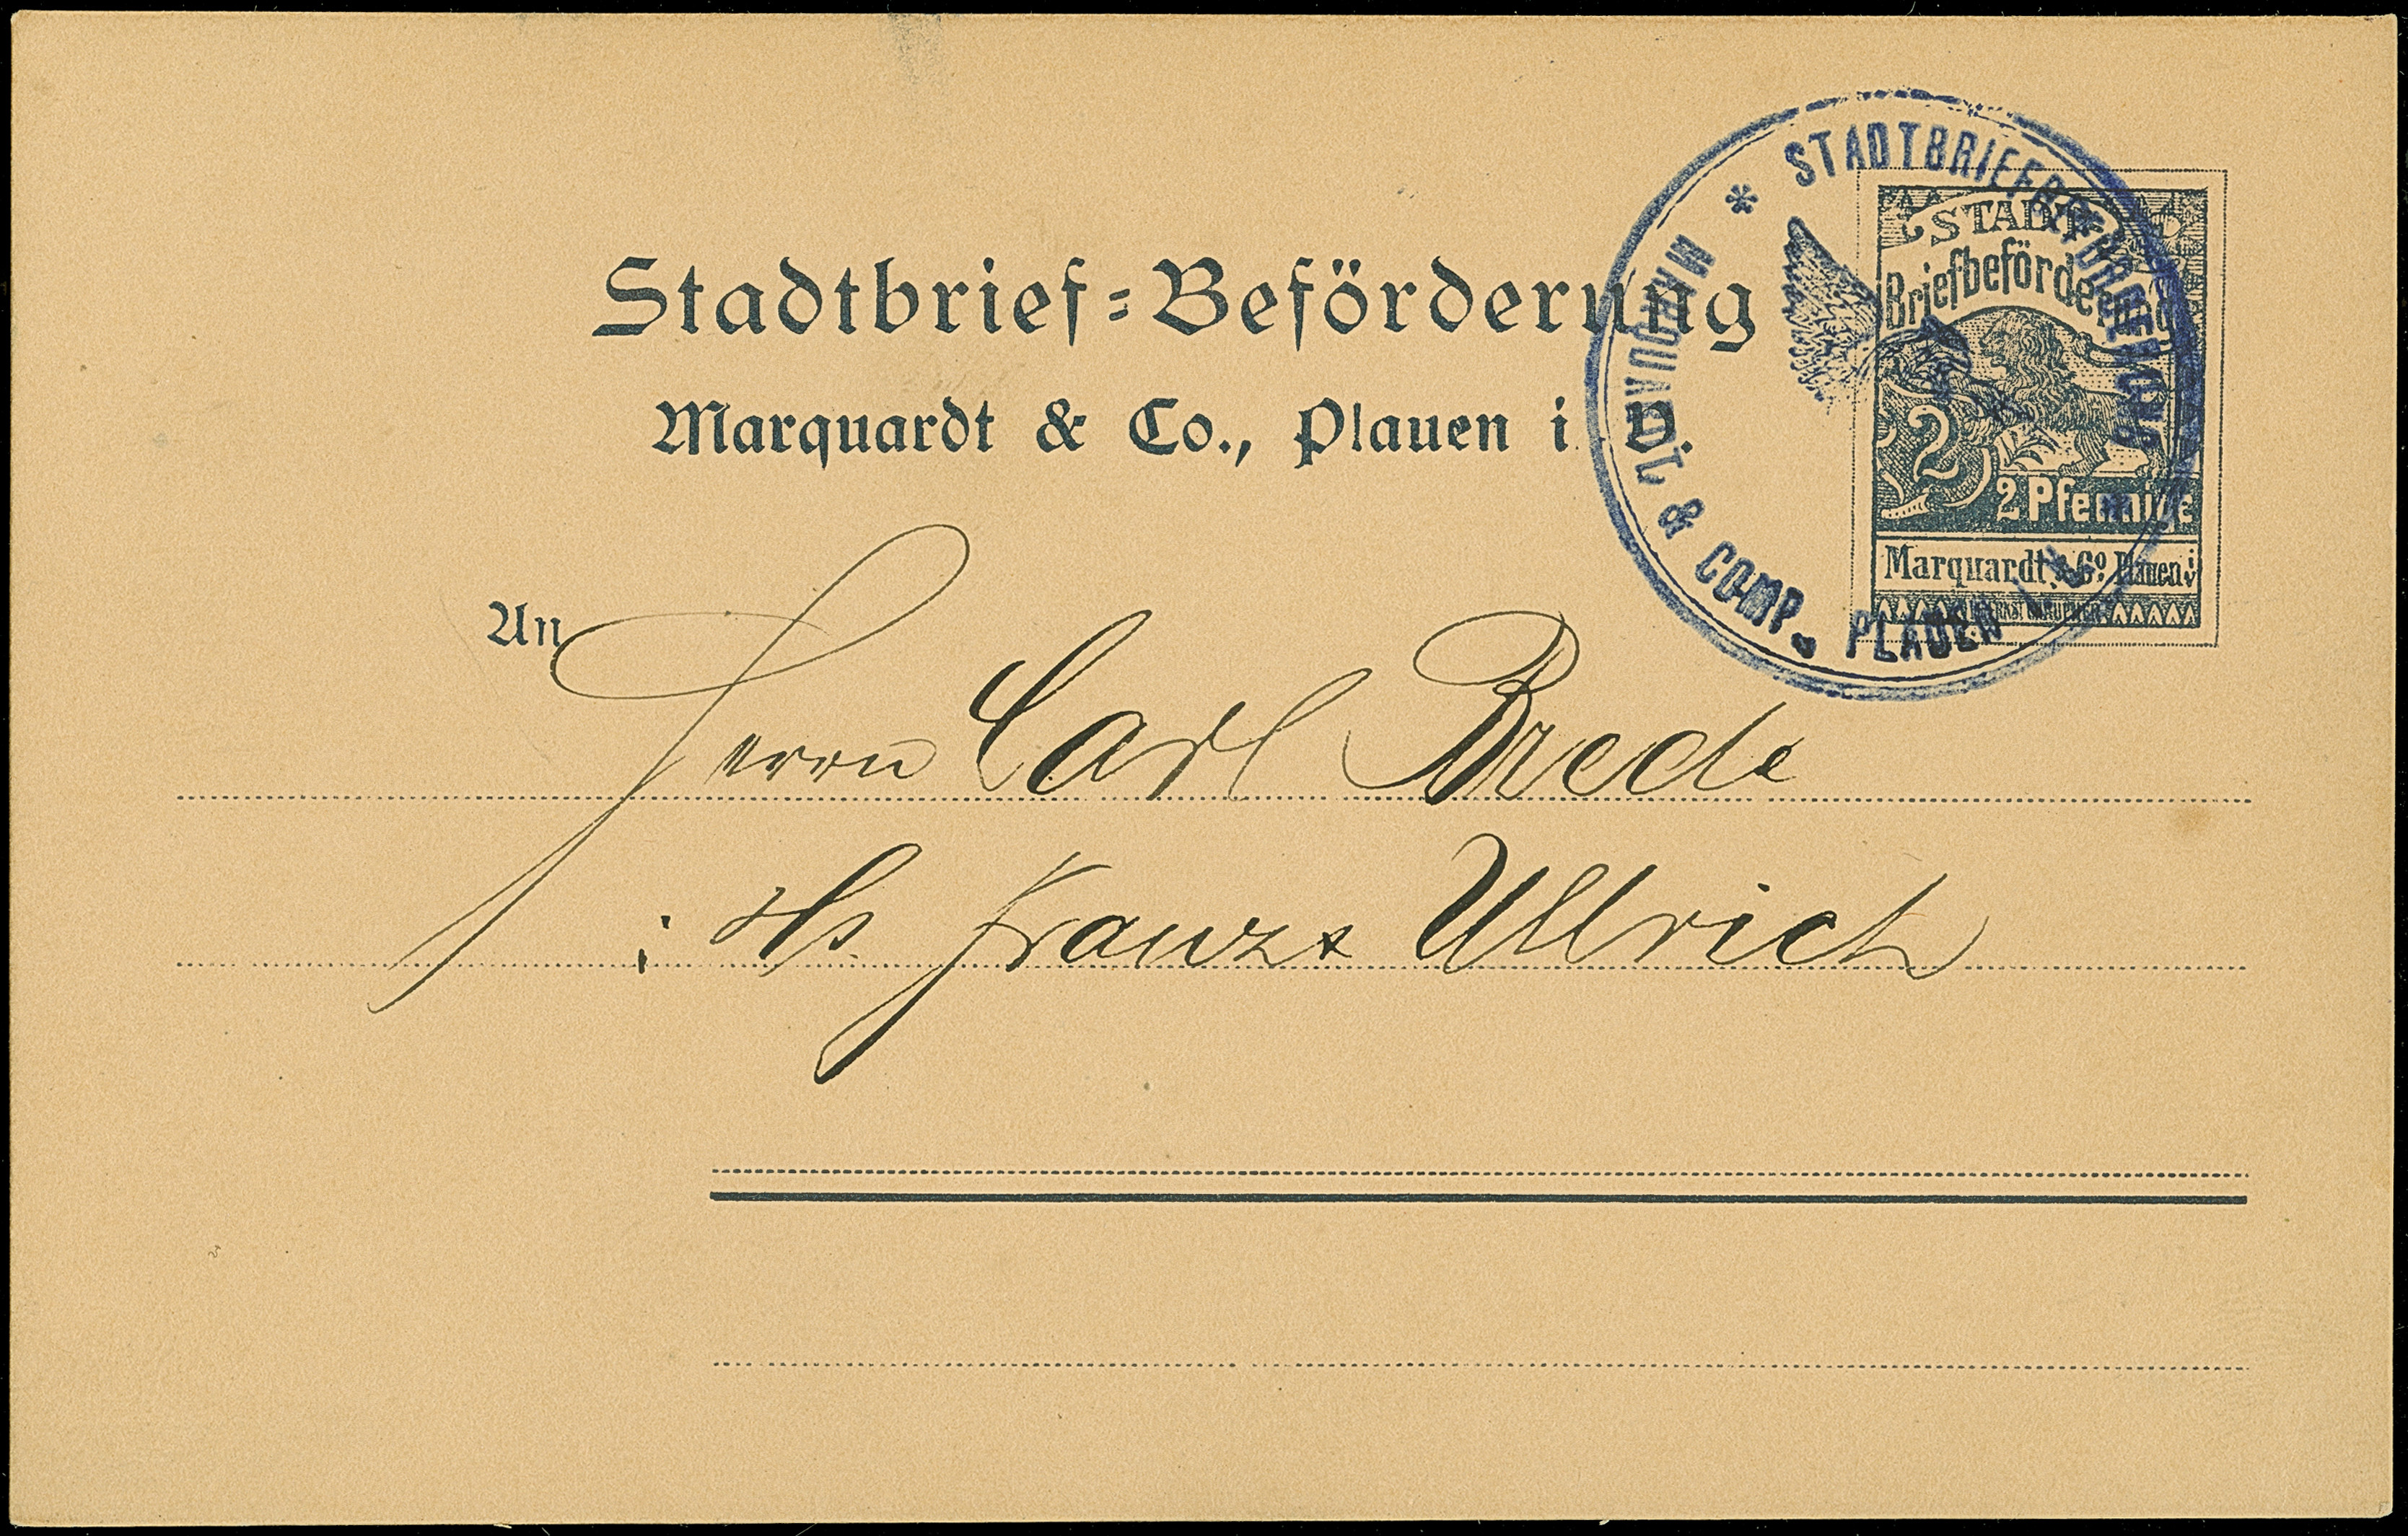 Stadtbrief=Beförderung
Marquardt & Co., Plauen i. V.
* STADTBRIEFBEFÖRDERUNG *
MARQUARDT & COMP. PLAUEN i. V.
STADT
Briefbeförderung
2
2 Pfennige
Marquardt & Co. Plauen i V
An
Herrn Carl Brede
i. Hs. Franz Ullrich